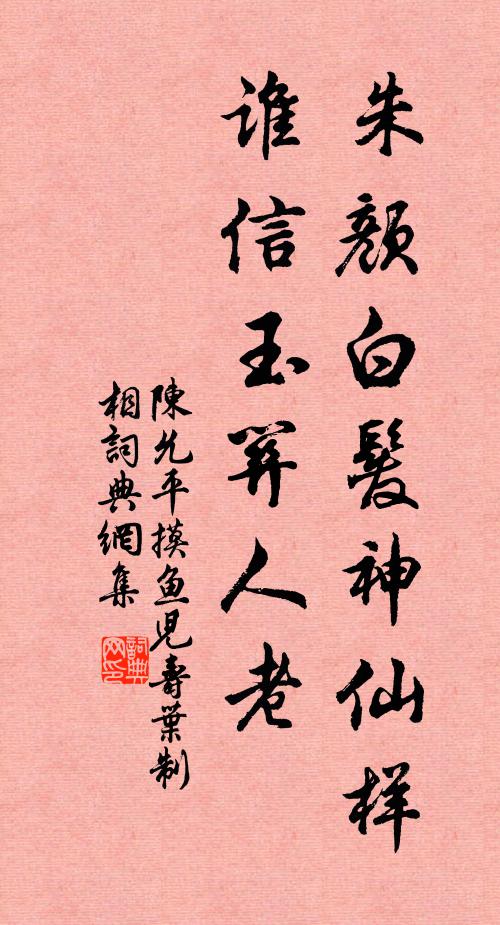 朱颜白髮神仙样
谁信玉关人老
陳允平摸鱼児壽葉制
相詞典網集
詞典网印